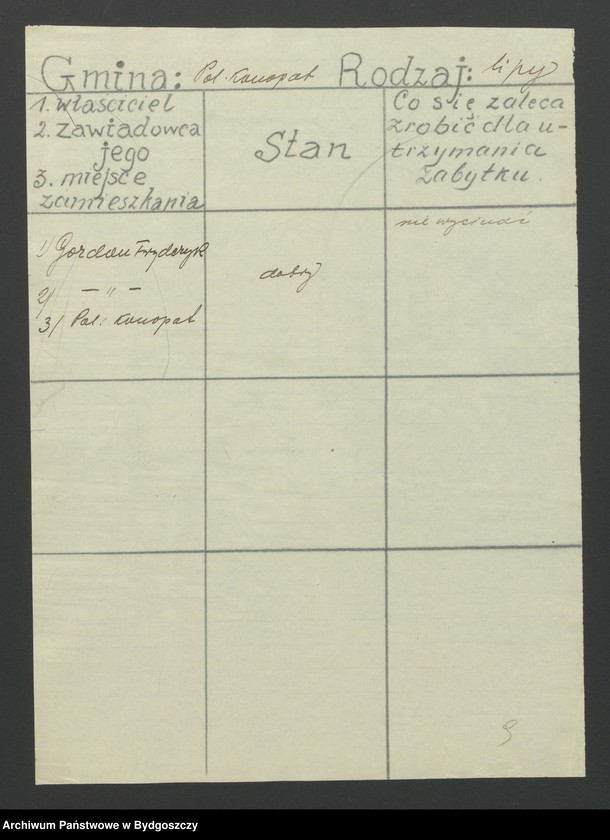 Gmina: Pol. Konopat Rodzaj: lipy
1. właściciel
2. zawiadowca
jego
3. miejsce
zamieszkania
Stan
Co się zaleca
zrobić dla u-
trzymania
zabytku.
1) Gordon Fryderyk
2) — " —
3) Pol: Konopat
dobry
nie wycinać
9
Archiwum Państwowe w Bydgoszczy